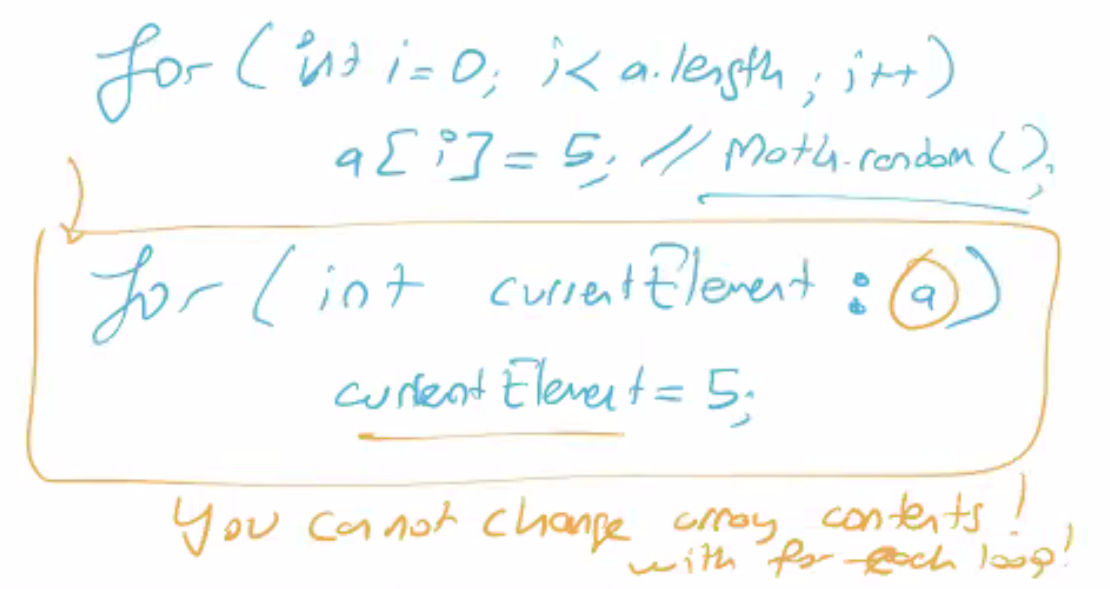 for (int i=0; i< a.length ; i++)
a[i] = 5; // Math.random();
for ( int currentElement : a )
currentElement = 5;
You cannot change array contents!
with for-each loop!